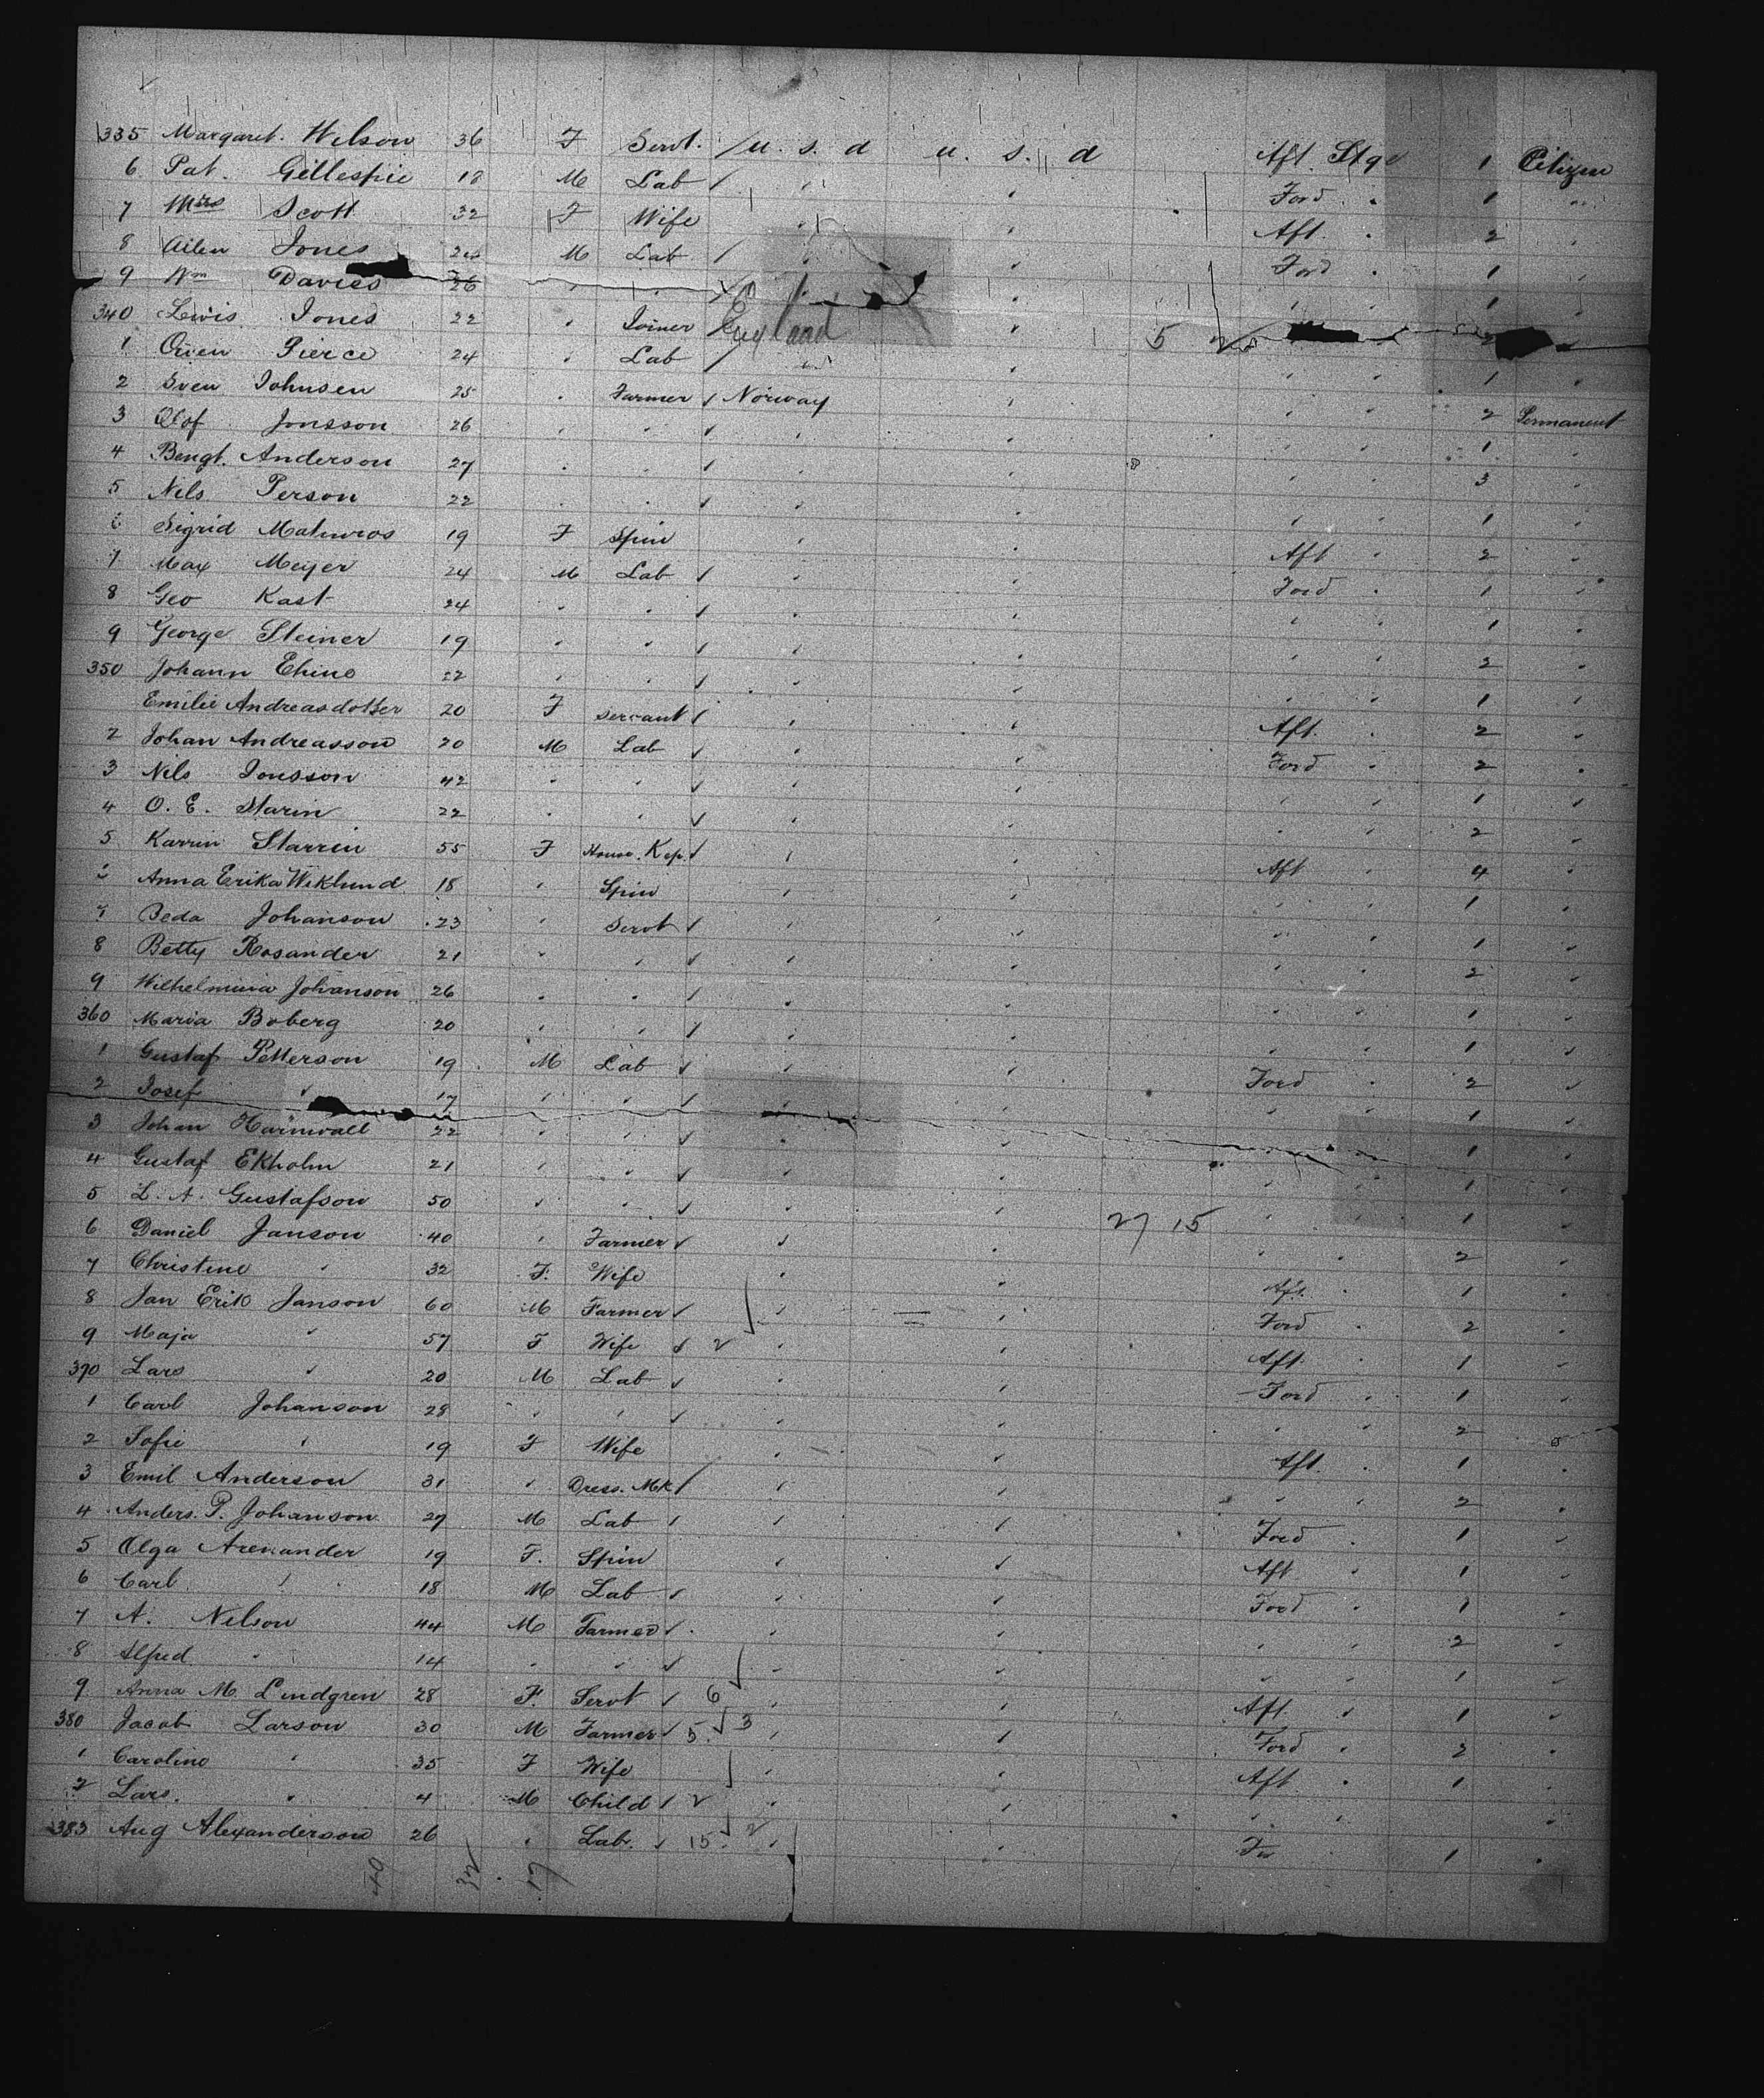 335 Margaret. Wilson 36 F Servt. u. s. a u. s. a Aft Stge 1 Citizen
6 Pat. Gillespie 18 M Lab Ford 1
7 Mrs Scott 32 F Wife Aft. 2
8 Jones 24 M Lab Ford 1
9 Wm Davies 26 1
340 Lewis Jones 22 Joiner England 5 2
1 Owen Pierce 24 Lab 1
2 Sven Johnsen 25 Farmer Norway 2 Permanent
3 Olof Jonsson 26 1
4 Bengt. Anderson 27 3
5 Nels Person 22 1
6 Sigrid 19 F Spin Aft 2
7 Max Meyer 24 M Lab Ford 1
8 Geo Kast 24 1
9 George Steiner 19 2
350 Johann 22 1
Emilie Andreasdotter 20 F Servant Aft. 2
2 Johan Andreasson 20 M Lab Ford 2
3 Nils Jonsson 42 1
4 O. E. Starin 22 2
5 Karrin Starrin 55 F House. Kep. Aft 4
6 Anna Erika Wiklund 18 Spin 1
7 Beda Johanson 23 Servt 1
8 Betty Rosander 21 2
9 Wilhelmina Johanson 26 1
360 Maria Boberg 20 1
1 Gustaf Petterson 19 M Lab Ford 2
2 Josef 17 1
3 Johan 22 1
4 Gustaf Ekholm 21 1
5 L. A. Gustafson 50 27 15 1
6 Daniel Janson 40 Farmer 2
7 Christine 32 F. Wife Aft. 1
8 Jan Erik Janson 60 M Farmer Ford 2
9 Maja 57 F Wife 2 Aft. 1
370 Lars 20 M Lab Ford 1
1 Carl Johanson 28 2
2 Sofie 19 F Wife Aft. 1
3 Emil Anderson 31 Dress. Mk 2
4 Anders. P. Johanson 27 M Lab Ford 1
5 Olga Arenander 19 F. Spin Aft 1
6 Carl 18 M Lab Ford 1
7 A. Nelson 44 M Farmer 2
8 Alfred 14 1
9 Anna M. Lindgren 28 F. Servt 6 Aft. 1
380 Jacob Larson 30 M Farmer 5 3 Ford 2
1 Caroline 35 F Wife Aft 1
2 Lars. 4 M Child 2
383 Aug Alexanderson 26 Lab. 15 2 1
40 32 17